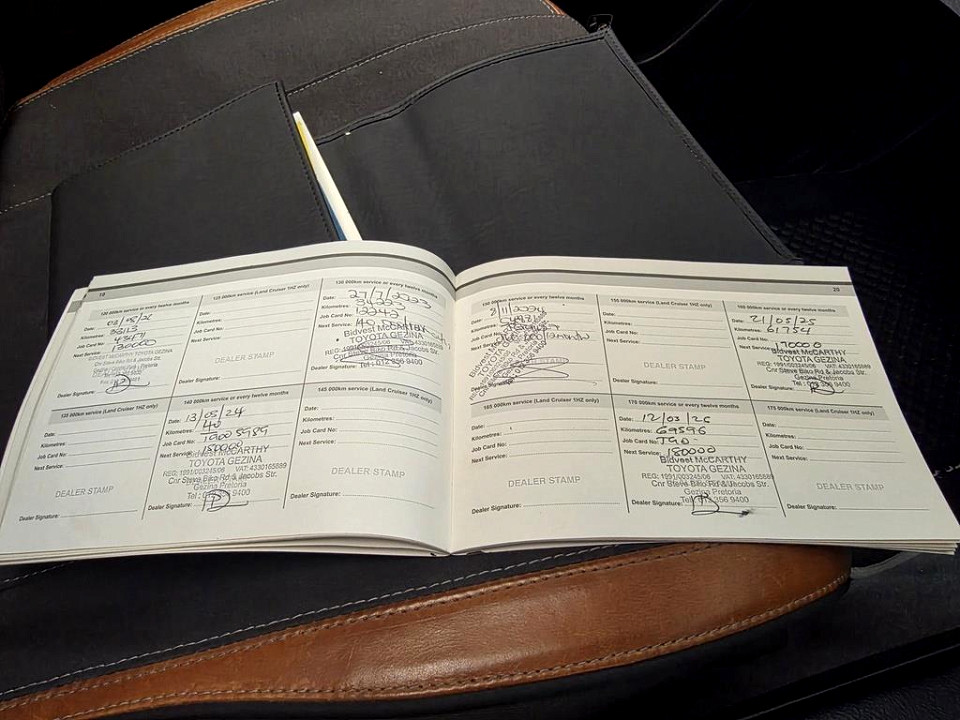 19
120 000km service or every twelve months
Date:
Kilometres:
Job Card No:
Next Service: 130000
BIDVEST McCARTHY TOYOTA GEZINA
Cnr Steve Biko Rd & Jacobs Str.
Gezina
Dealer Signature:
125 000km service (Land Cruiser 1HZ only)
Date:
Kilometres:
Job Card No:
Next Service:
DEALER STAMP
Dealer Signature:
130 000km service or every twelve months
Date: 27/7/2023
Kilometres: 34223
Job Card No: 12242
Next Service:
Bidvest McCARTHY
TOYOTA GEZINA
Cnr Steve Biko Rd & Jacobs Str.
Gezina Pretoria
Dealer Signature:
135 000km service (Land Cruiser 1HZ only)
Date:
Kilometres:
Job Card No:
Next Service:
DEALER STAMP
Dealer Signature:
140 000km service or every twelve months
Date: 13/05/24
Kilometres:
Job Card No:
Next Service: 150000
Bidvest McCARTHY
TOYOTA GEZINA
REG: 1991/003245/06 VAT: 4330165589
Cnr Steve Biko Rd & Jacobs Str.
Gezina Pretoria
Tel: 012 356 9400
Dealer Signature:
145 000km service (Land Cruiser 1HZ only)
Date:
Kilometres:
Job Card No:
Next Service:
DEALER STAMP
Dealer Signature:
20
150 000km service or every twelve months
Date: 8/11/2024
Kilometres:
Job Card No:
Next Service:
Dealer Signature:
155 000km service (Land Cruiser 1HZ only)
Date:
Kilometres:
Job Card No:
Next Service:
DEALER STAMP
Dealer Signature:
160 000km service or every twelve months
Date: 21/05/25
Kilometres: 61754
Job Card No:
Next Service: 170000
Bidvest McCARTHY
TOYOTA GEZINA
REG: 1991/003245/06 VAT: 4330165589
Cnr Steve Biko Rd & Jacobs Str.
Gezina Pretoria
Tel: 012 356 9400
Dealer Signature:
165 000km service (Land Cruiser 1HZ only)
Date:
Kilometres:
Job Card No:
Next Service:
DEALER STAMP
Dealer Signature:
170 000km service or every twelve months
Date: 12/03/26
Kilometres: 69596
Job Card No:
Next Service: 180000
Bidvest McCARTHY
TOYOTA GEZINA
REG: 1991/003245/06 VAT: 4330165589
Cnr Steve Biko Rd & Jacobs Str.
Gezina Pretoria
Tel: 012 356 9400
Dealer Signature:
175 000km service (Land Cruiser 1HZ only)
Date:
Kilometres:
Job Card No:
Next Service:
DEALER STAMP
Dealer Signature: